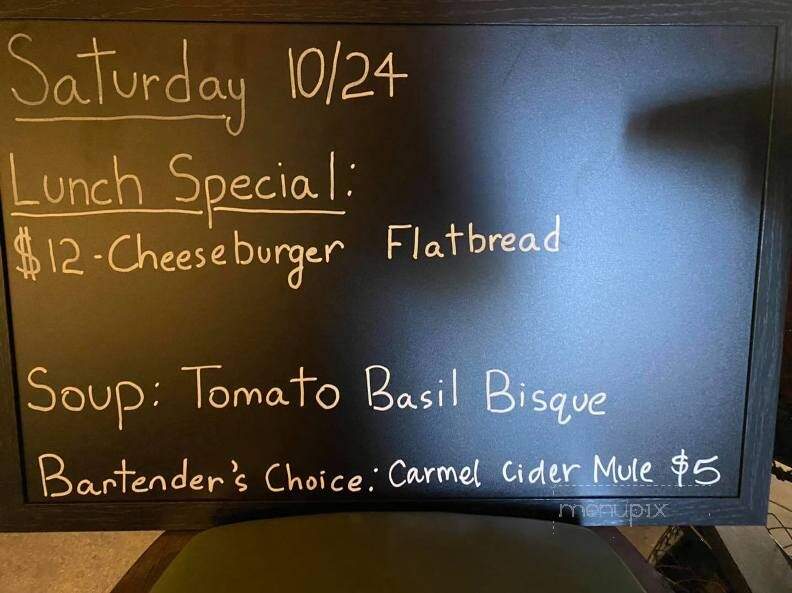 Saturday 10/24
Lunch Special:
$12-Cheeseburger Flatbread
Soup: Tomato Basil Bisque
Bartender's Choice: Carmel Cider Mule $5
menupix